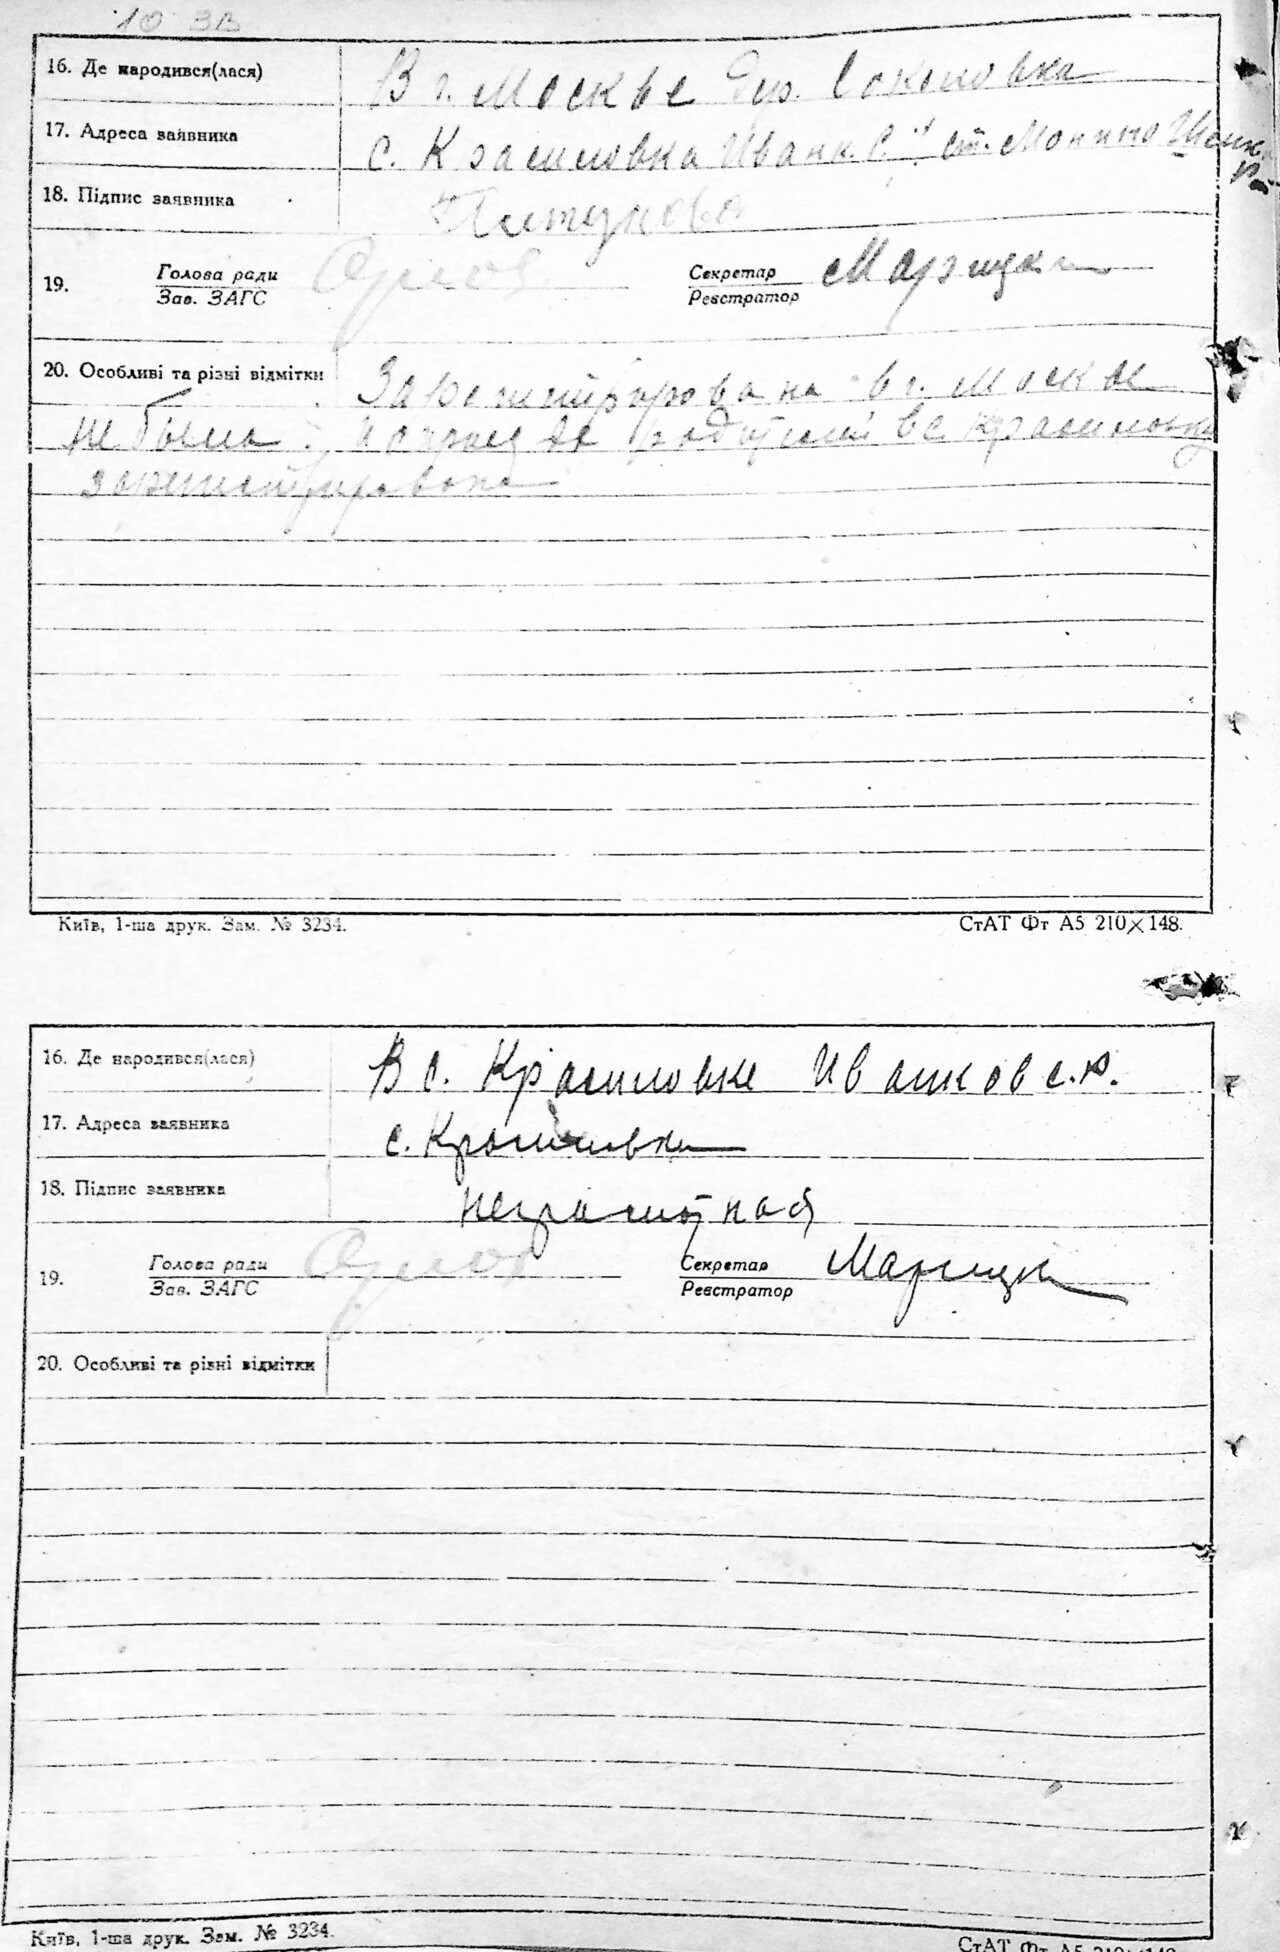 10 ЗВ
16. Де народився(лася) В г. Москве дер. Соколовка
17. Адреса заявника с. Красиловка Иванк. ст. Монино
18. Підпис заявника
19. Голова ради Секретар
Зав. ЗАГС Реєстратор
20. Особливі та різні відмітки Зарегистрирована в г. Москве
не была родителей в с Красиловку
зарегистрирована
Київ, 1-ша друк. Зам. № 3234. СтАТ Фт А5 210×148.
16. Де народився(лася) В с. Красиловке Иванковс.р.
17. Адреса заявника с. Красиловка
18. Підпис заявника неграмотная
19. Голова ради Секретар
Зав. ЗАГС Реєстратор
20. Особливі та різні відмітки
Київ, 1-ша друк. Зам. № 3234. СтАТ Фт А5 210×148